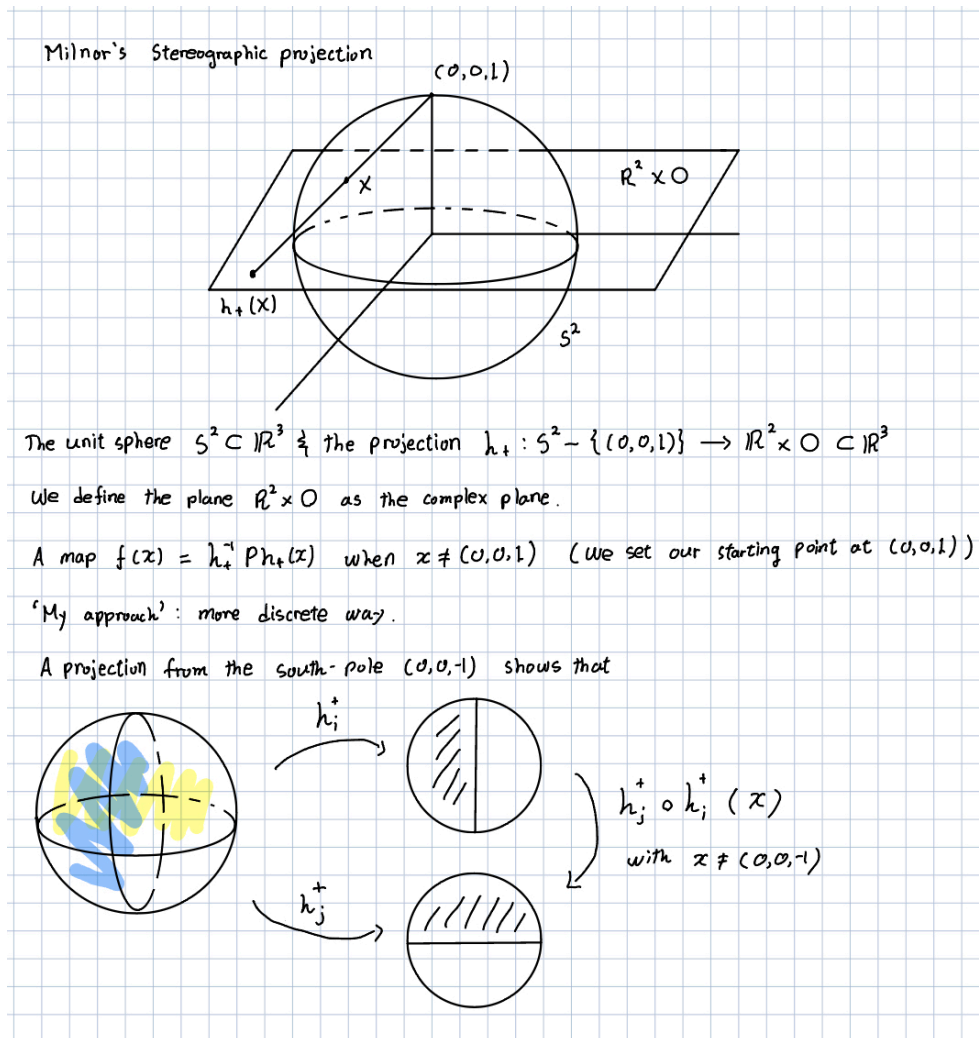 Milnor's Stereographic projection
(0,0,1)
R² × O
x
h₊(x)
S²
The unit sphere S² ⊂ ℝ³ & the projection h₊ : S² − {(0,0,1)} → ℝ² × O ⊂ ℝ³
We define the plane R² × O as the complex plane.
A map f(x) = h₊⁻¹ P h₊(x) when x ≠ (0,0,1) (we set our starting point at (0,0,1))
'My approach' : more discrete way.
A projection from the south-pole (0,0,-1) shows that
hᵢ⁺
hⱼ⁺ ∘ hᵢ⁺ (x)
with x ≠ (0,0,-1)
hⱼ⁺